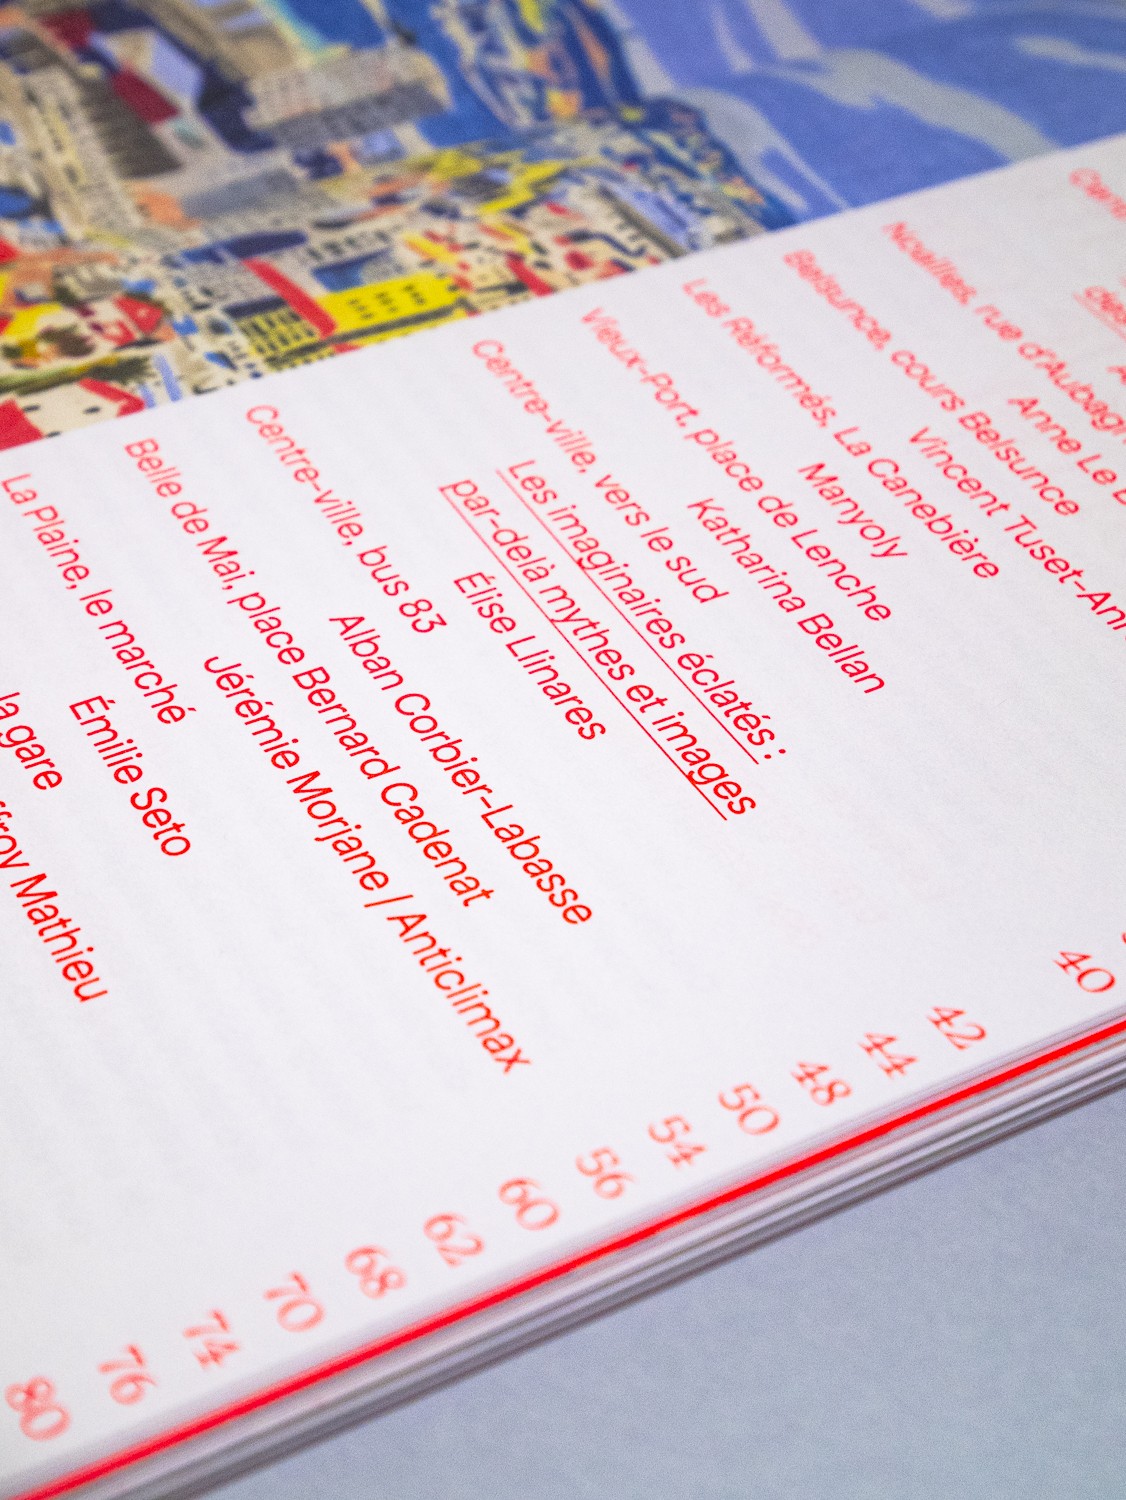 des
Noailles, rue d'Aubagn
Anne Le
Belsunce, cours Belsunce
Vincent Tuset-An
Les Réformés, La Canebière
Manyoly
Vieux-Port, place de Lenche
Katharina Bellan
Centre-ville, vers le sud
Les imaginaires éclatés :
par-delà mythes et images
Élise Llinares
Centre-ville, bus 83
Alban Corbier-Labasse
Belle de Mai, place Bernard Cadenat
Jérémie Morjane / Anticlimax
La Plaine, le marché
Émilie Seto
la gare
ffroy Mathieu
40
42
44
48
50
54
56
60
62
68
70
74
76
80